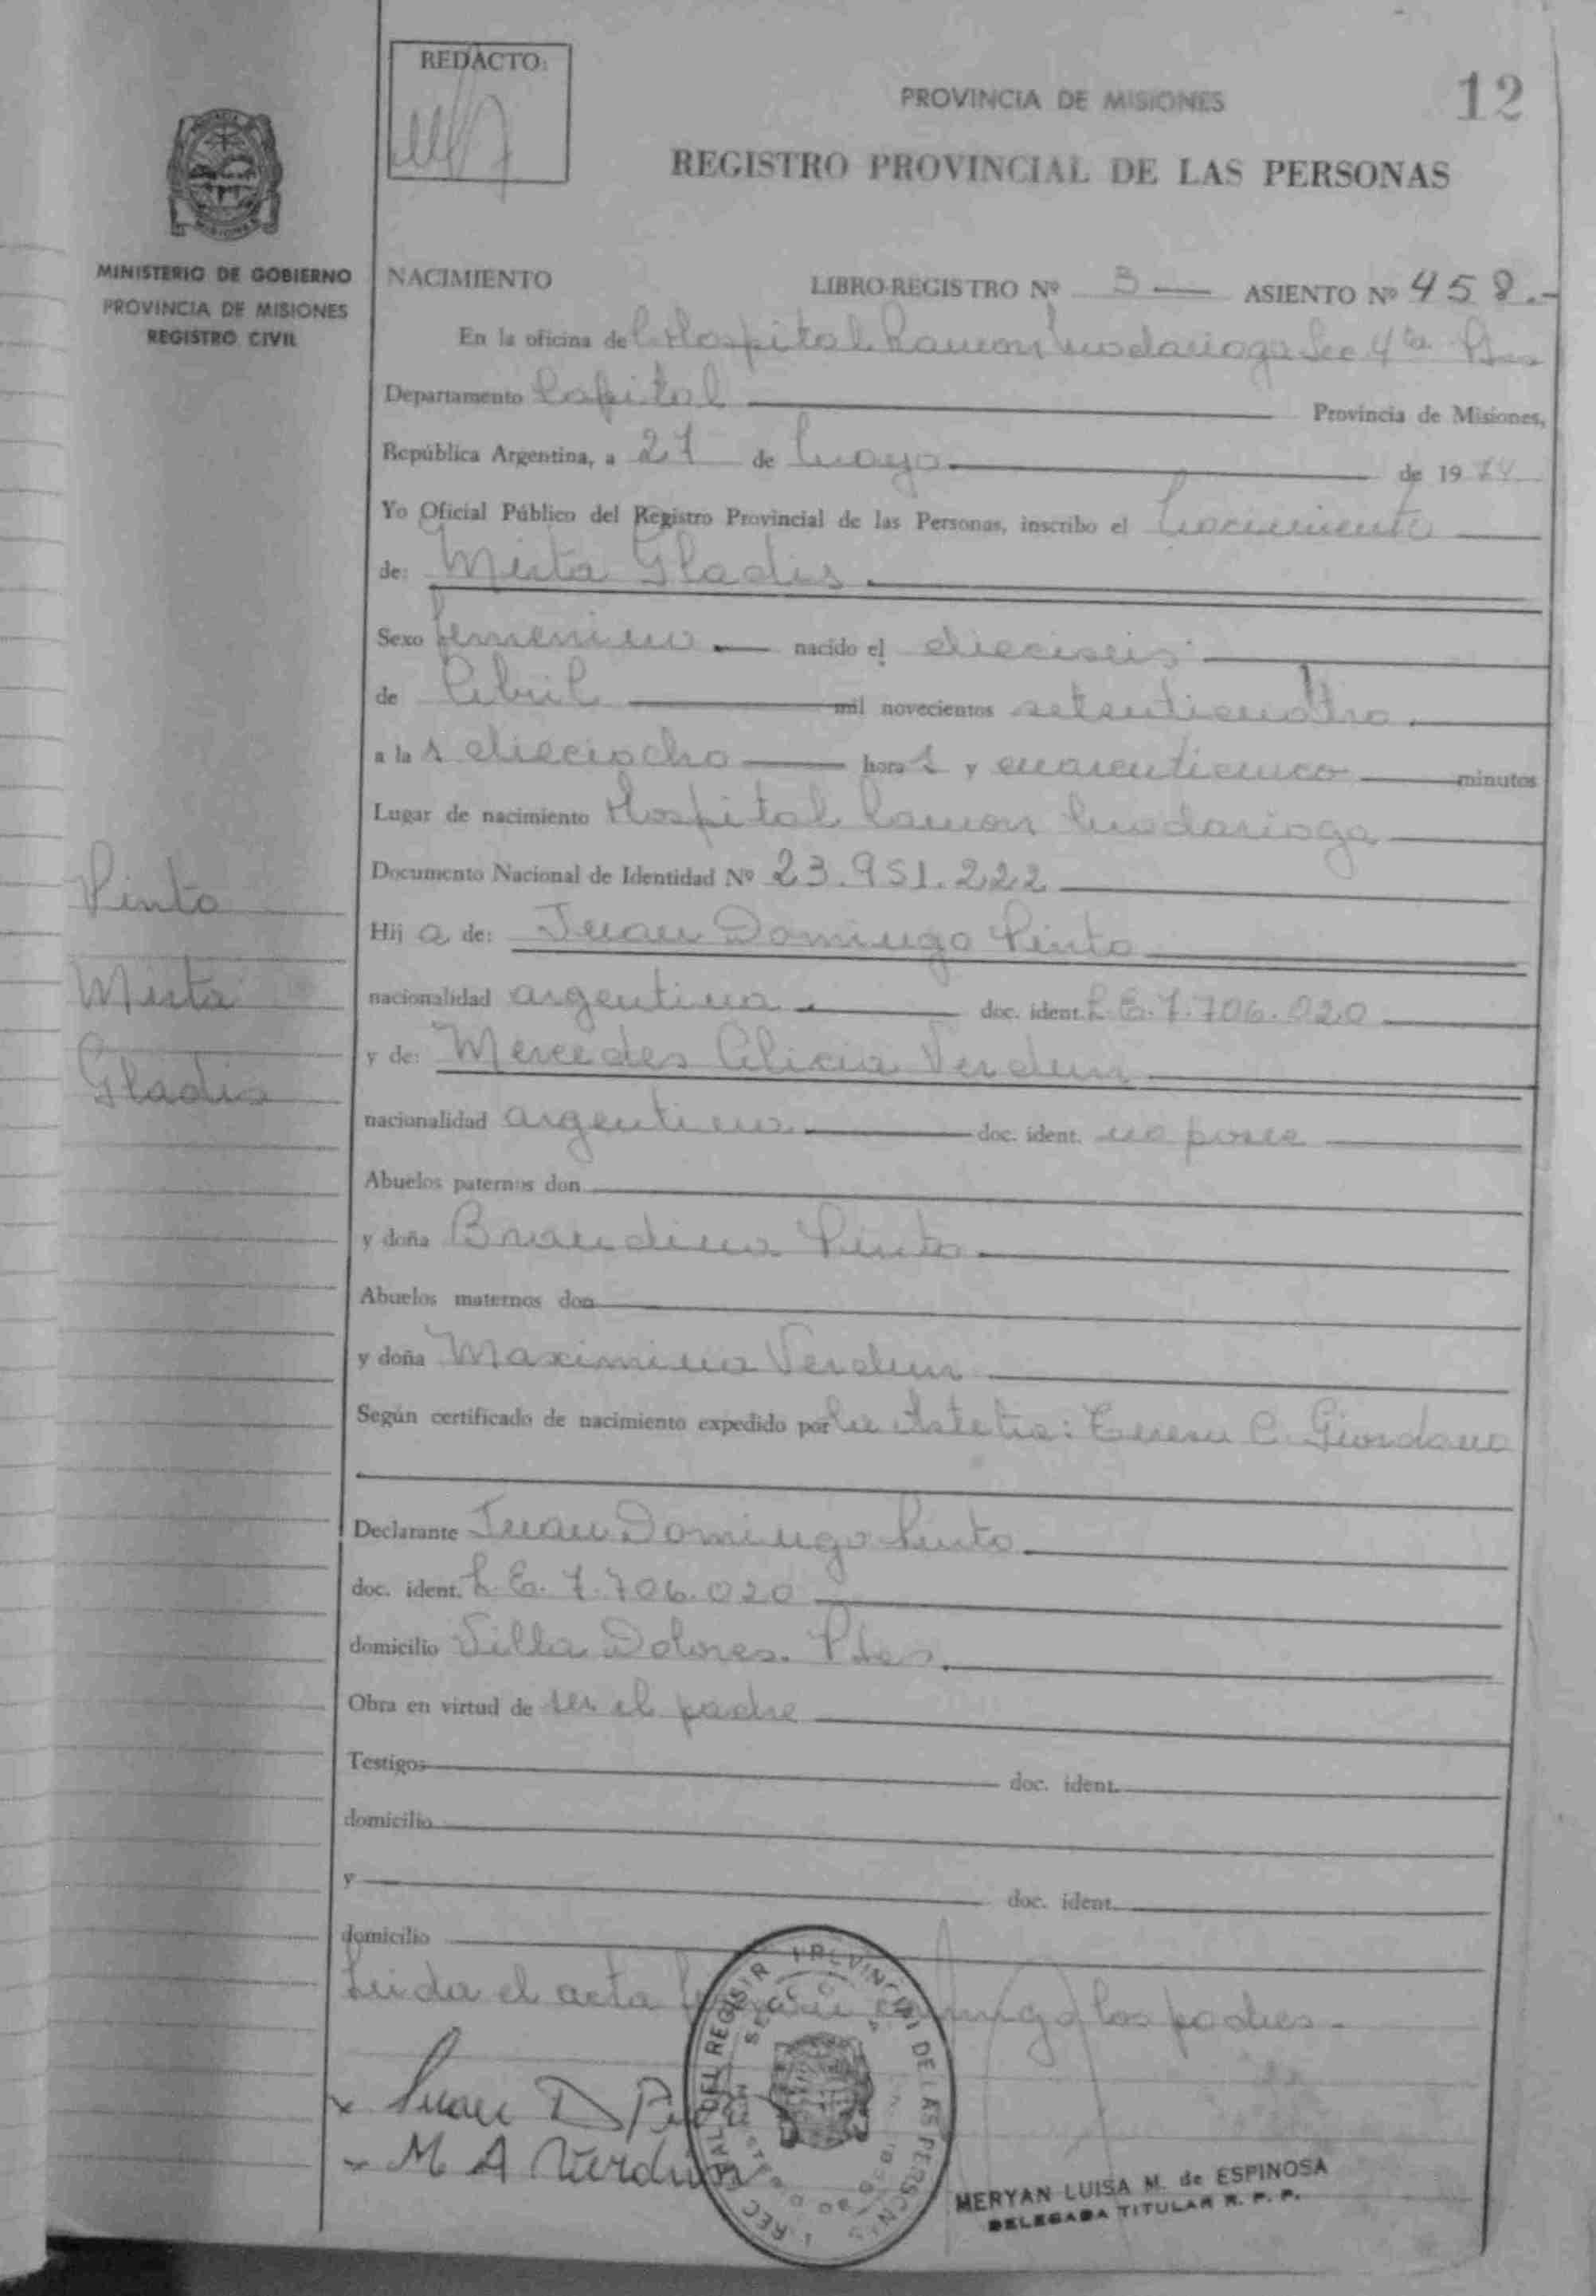 REDACTO:
PROVINCIA DE MISIONES
12
REGISTRO PROVINCIAL DE LAS PERSONAS
MINISTERIO DE GOBIERNO
PROVINCIA DE MISIONES
REGISTRO CIVIL
NACIMIENTO LIBRO-REGISTRO Nº 3 ASIENTO Nº 458.-
En la oficina de Hospital Ramon Madariaga Sec 4ta Pdas
Departamento Capital Provincia de Misiones,
República Argentina, a 21 de Mayo de 1974
Yo Oficial Público del Registro Provincial de las Personas, inscribo el Nacimiento
de: Mirta Gladis
Sexo femenino nacido el dieciseis
de Abril mil novecientos setenticuatro
a las dieciocho horas y cuarenticinco minutos
Lugar de nacimiento Hospital Ramon Madariaga
Documento Nacional de Identidad Nº 23.951.222
Hija de: Juan Domingo Pinto
nacionalidad argentina doc. ident. L.E. 7.706.020
y de: Mercedes Alicia Verdun
nacionalidad argentina doc. ident. no posee
Abuelos paternos don
y doña Brandina Pinto
Abuelos maternos don
y doña Maximina Verdun
Según certificado de nacimiento expedido por la Obstetra: Teresa C. Giordano
Declarante Juan Domingo Pinto
doc. ident. L.E. 7.706.020
domicilio Villa Dolores. Pdas
Obra en virtud de ser el padre
Testigos doc. ident.
domicilio
y doc. ident.
domicilio
Leida el acta firman conmigo los padres.-
x Juan D Pinto
x M A Verdun
Pinto
Mirta
Gladis
MERYAN LUISA M. de ESPINOSA
DELEGADA TITULAR R. P. P.